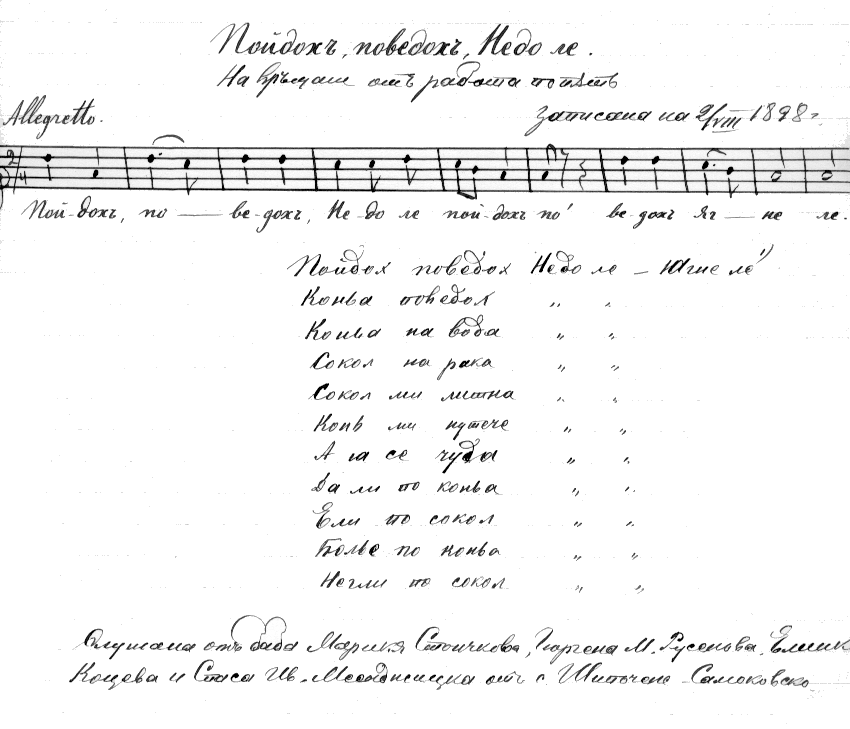 Пойдохъ, поведохъ, Недо ле.
На връщане отъ работа попѣтъ
Allegretto.
Записана на 2/VIII 1898 г.
2/4
Пой-дохъ, по — ве-дохъ, Не-до ле пой-дохъ по' ве-дохъ Яг — не ле.
Пойдох поведох Недо ле – Югне ле 1)
Коньа поведох " "
Коньа на вода " "
Сокол на рака " "
Сокол ми литна " "
Конь ми утече " "
А ја се чуда " "
Да ли по коньа " "
Ели по сокол " "
Болье по коньа " "
Негли по сокол " "
Слушана отъ баба Марика Стоичкова, Гюргена М. Русенова,
Коцева и Стаса Ив. отъ с. Шипочене – Самоковско